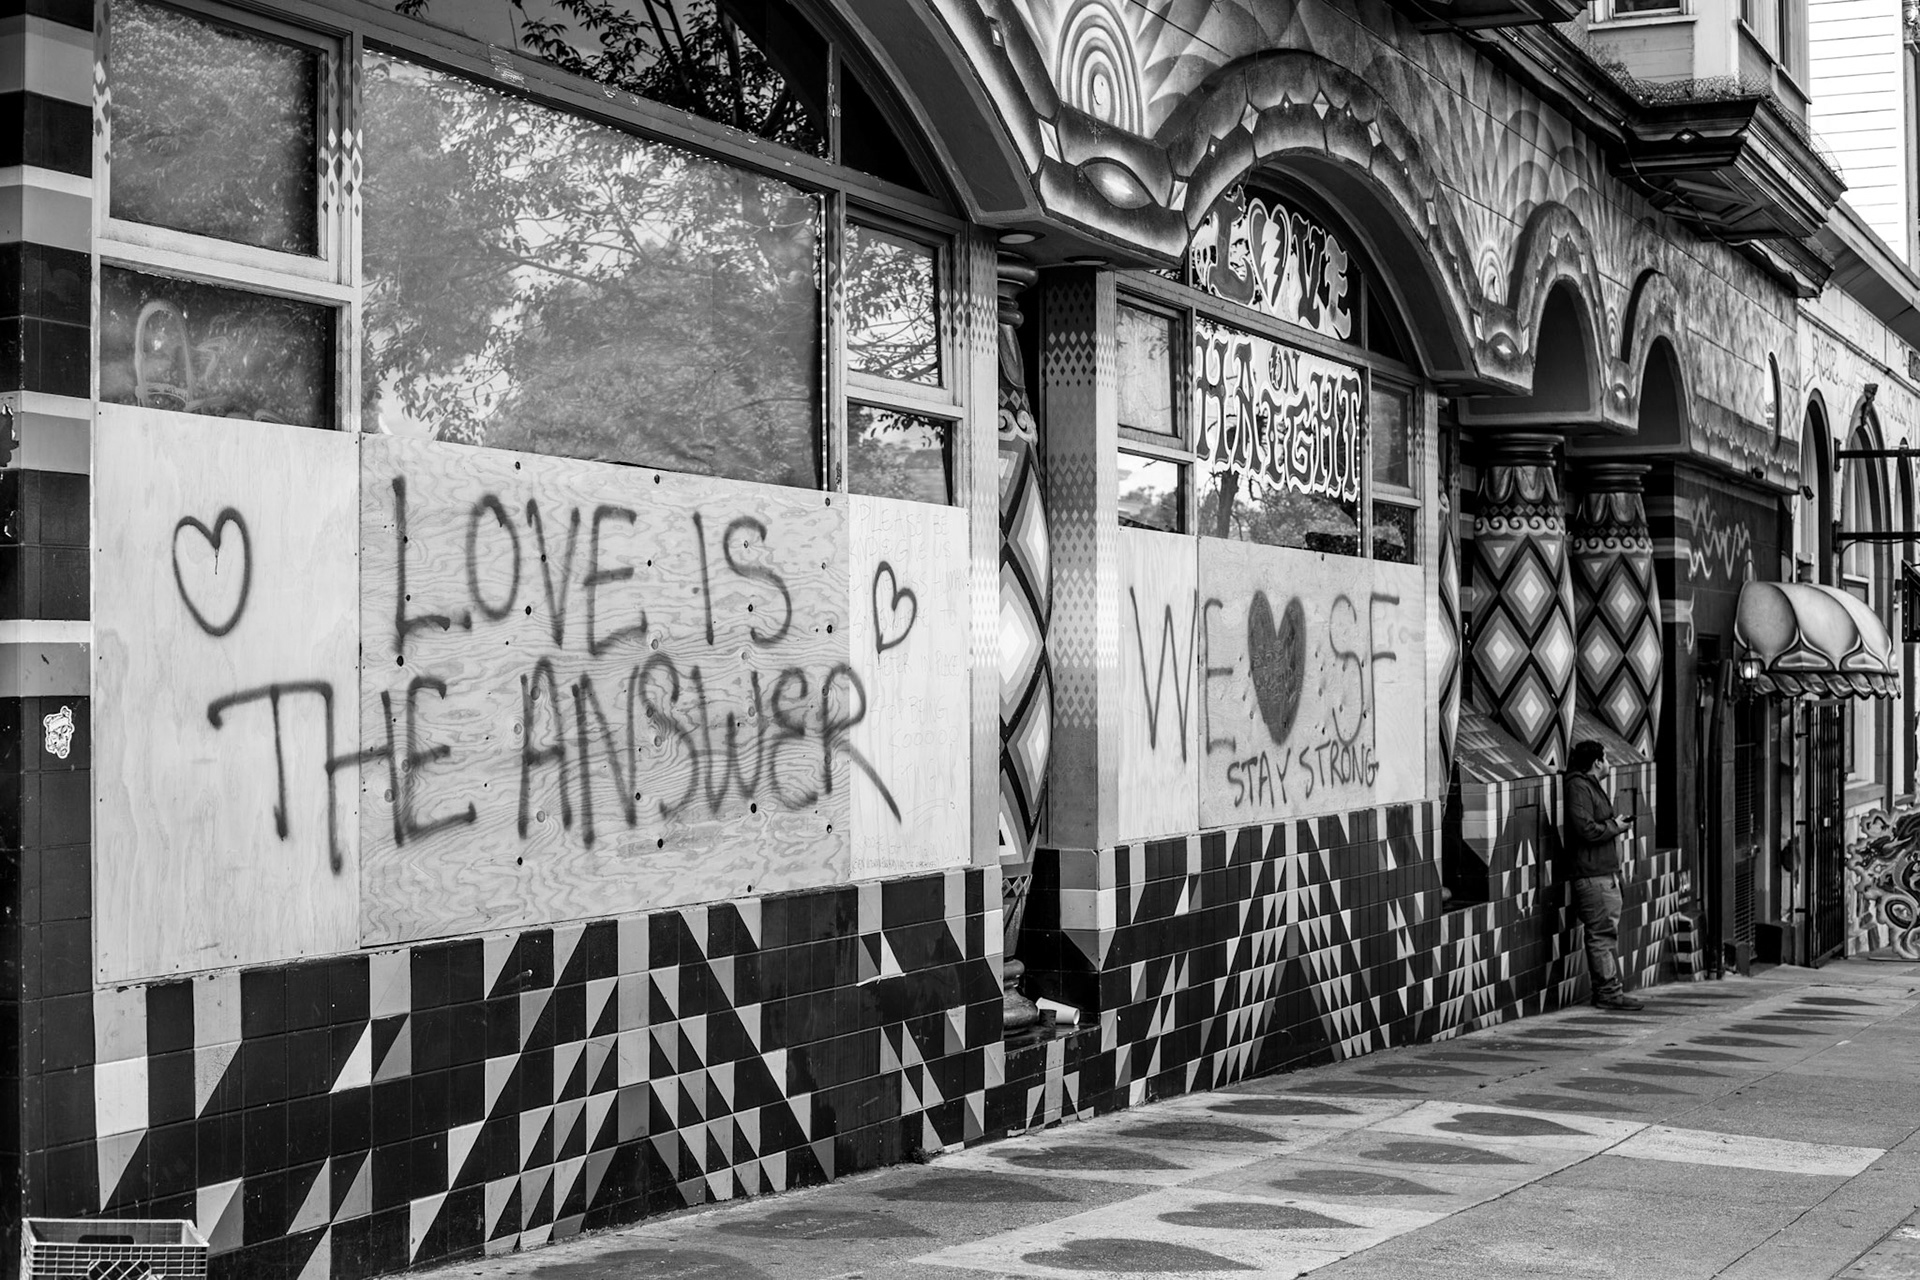 LOVE IS
THE ANSWER
LOVE
ON
HAIGHT
WE ♥ SF
STAY STRONG
PLEASE BE